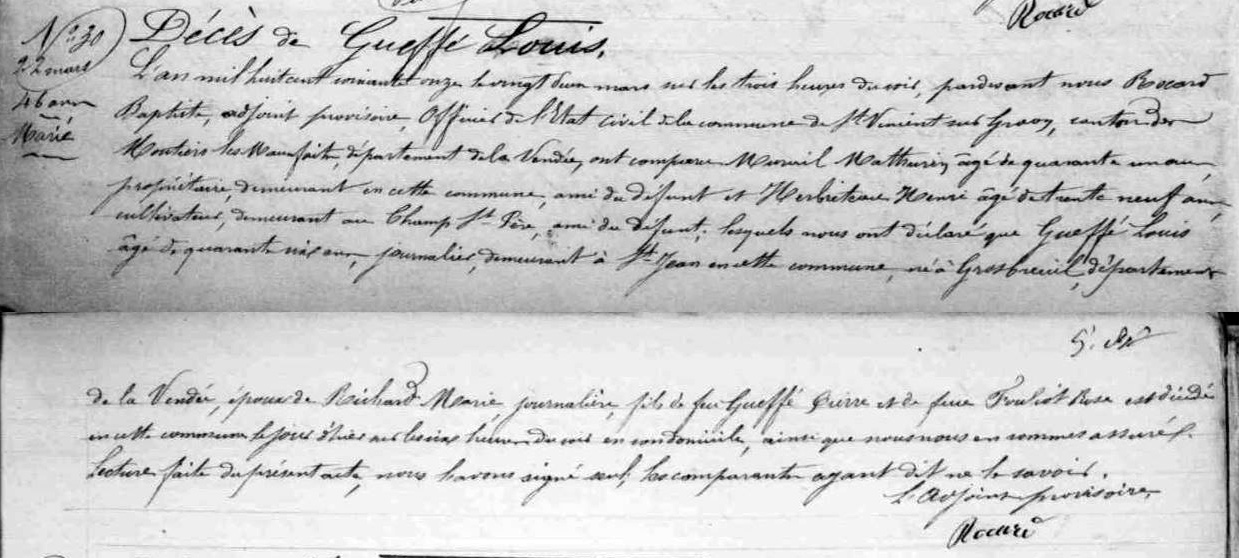 Rocard
N° 30 Décès de Gueffé Louis.
22 mars
46 ans
Marié
L'an mil huit cent soixante onze le vingt deux mars sur les trois heures du soir, pardevant nous Rocard
Baptiste, adjoint provisoire, Officier de l'Etat civil de la commune de St Vincent sur Graon, canton des
Moutiers les Mauxfaits, département de la Vendée, ont comparu Mathurin, âgé de quarante un ans,
propriétaire, demeurant en cette commune, ami du défunt et Herbreteau Henri âgé de trente neuf ans,
cultivateur, demeurant au Champ St Père, ami du défunt; lesquels nous ont déclaré que Gueffé Louis
âgé de quarante six ans, journalier, demeurant à St Jean en cette commune, né à Grosbreuil, département
de la Vendée, époux de Richard Marie, journalière, fils de feu Gueffé Pierre et de feue Rose est décédé
en cette commune le jour d'hier sur les six heures du soir en son domicile, ainsi que nous nous en sommes assuré.
Lecture faite du présent acte, nous l'avons signé seul, les comparants ayant dit ne le savoir.
L'Adjoint provisoire,
Rocard